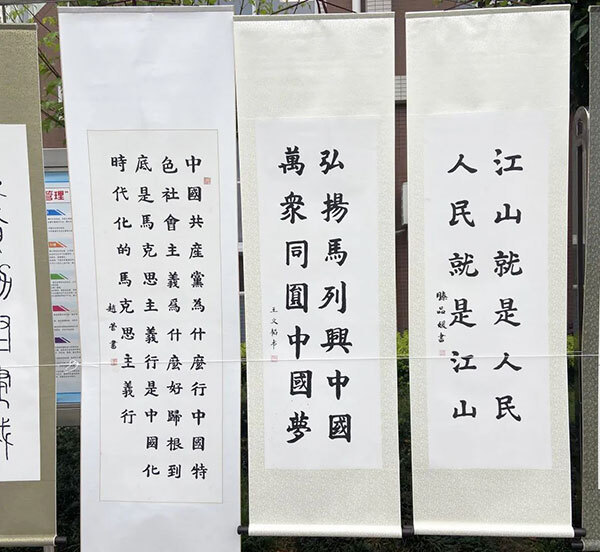 江山就是人民
人民就是江山
弘揚馬列興中國
萬衆同圓中國夢
中國共産黨為什麼行中國特
色社會主義爲什麼好歸根到
底是馬克思主義行是中國化
時代化的馬克思主義行
管理”